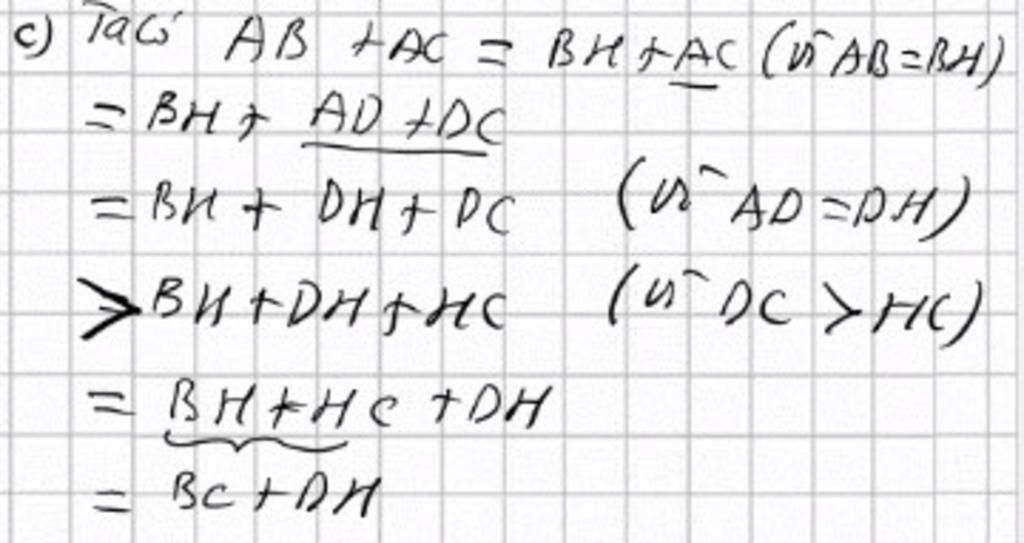 c) Ta có AB + AC = BH + AC (vì AB = BH)
= BH + AD + DC
= BH + DH + DC (vì AD = DH)
> BH + DH + HC (vì DC > HC)
= BH + HC + DH
= BC + DH